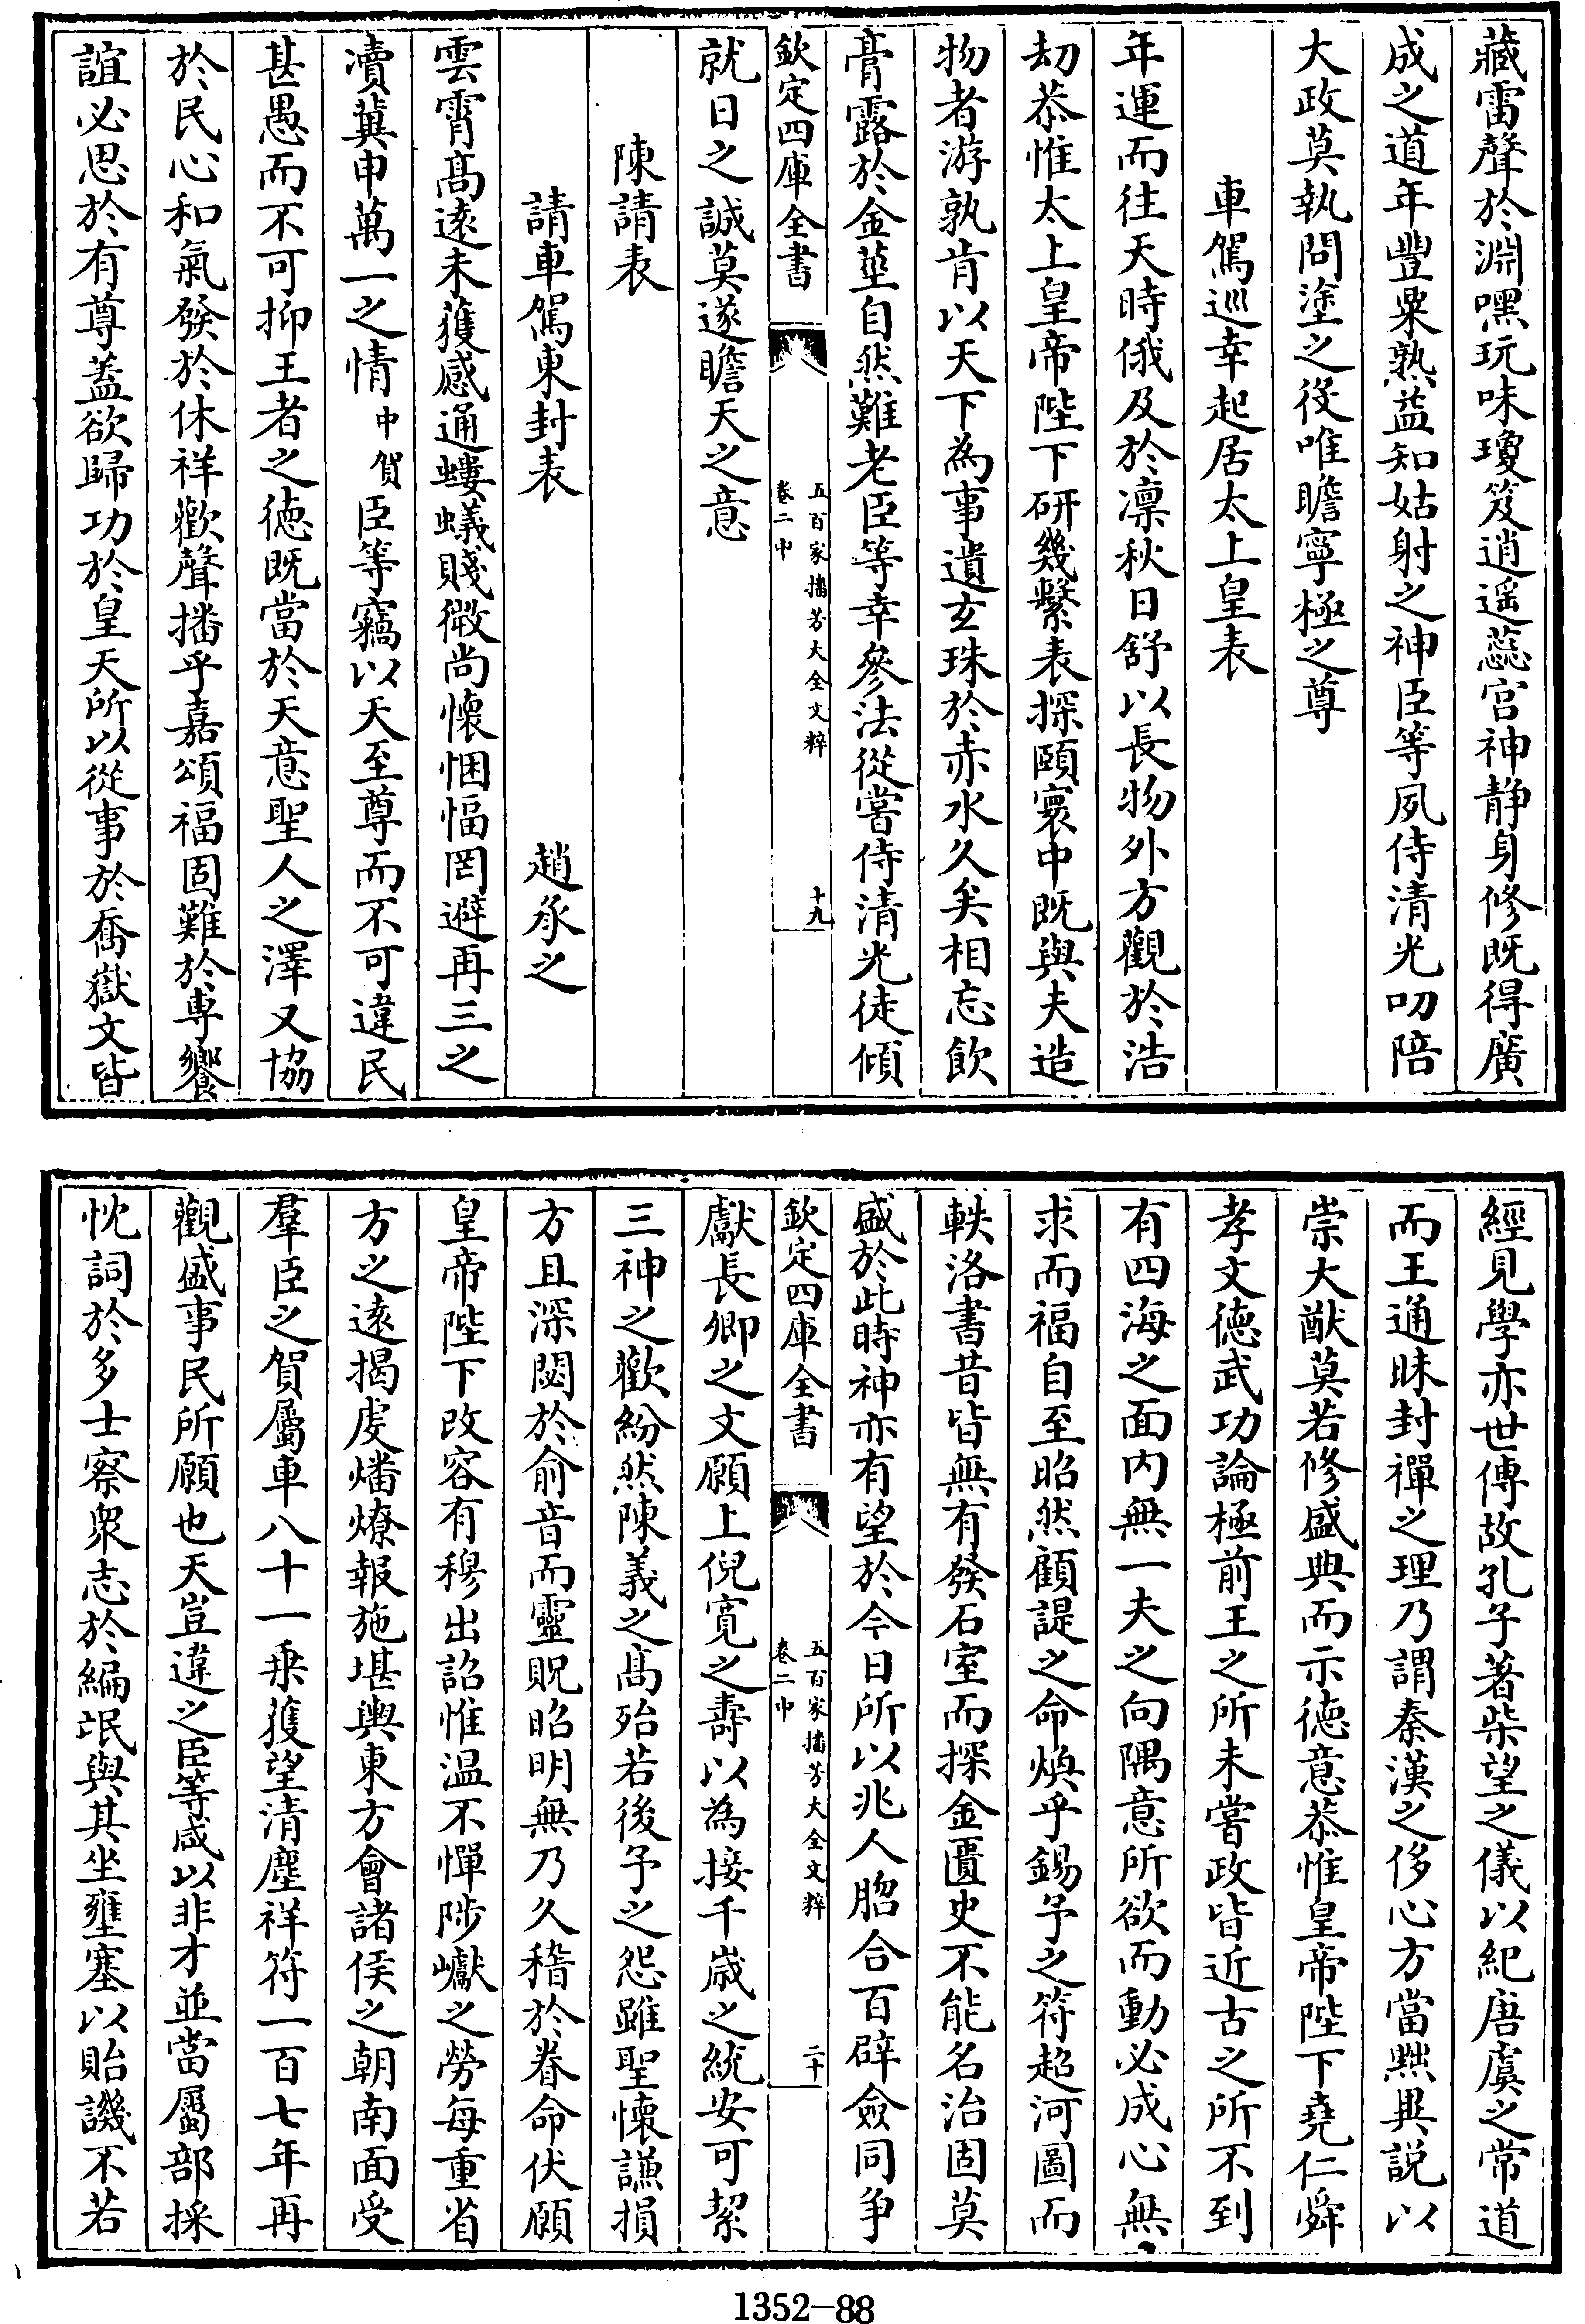 藏雷聲於淵嘿玩味瓊笈逍遥蕊宫神静身修既得廣
成之道年豐粟熟益知姑射之神臣等夙侍清光叨陪
大政莫執問塗之役唯瞻寧極之尊
車駕巡幸起居太上皇表
年運而往天時俄及於凜秋日舒以長物外方觀於浩
劫恭惟太上皇帝陛下研幾繫表探賾寰中既與夫造
物者游孰肯以天下為事遺玄珠於赤水久矣相忘飲
膏露於金莖自然難老臣等幸參法從嘗侍清光徒傾
欽定四庫全書
五百家播芳大全文粹
卷二中
十九
就日之誠莫遂瞻天之意
陳請表
請車駕東封表 趙承之
雲霄髙逺未獲感通螻蟻賤微尚懷悃愊罔避再三之
瀆冀申萬一之情中賀臣等竊以天至尊而不可違民
甚愚而不可抑王者之徳既當於天意聖人之澤又協
於民心和氣發於休祥歡聲播乎嘉頌福固難於専饗
誼必思於有尊蓋欲歸功於皇天所以從事於喬嶽文皆
經見學亦世傳故孔子著柴望之儀以紀唐虞之常道
而王通昧封禪之理乃謂秦漢之侈心方當黜異説以
崇大猷莫若修盛典而示徳意恭惟皇帝陛下堯仁舜
孝文徳武功論極前王之所未嘗政皆近古之所不到
有四海之面内無一夫之向隅意所欲而動必成心無
求而福自至昭然顧諟之命煥乎錫予之符超河圖而
軼洛書昔皆無有發石室而探金匱史不能名治固莫
盛於此時神亦有望於今日所以兆人脗合百辟僉同争
欽定四庫全書
五百家播芳大全文粹
卷二中
二十
獻長卿之文願上倪寛之壽以為接千嵗之統安可絜
三神之歡紛然陳義之髙殆若後予之怨雖聖懷謙損
方且深閟於俞音而靈貺昭明無乃久稽於眷命伏願
皇帝陛下改容有穆出詔惟温不憚陟巘之勞每重省
方之逺揭虔燔燎報施堪輿東方會諸侯之朝南面受
羣臣之賀屬車八十一乗獲望清塵祥符一百七年再
觀盛事民所願也天豈違之臣等咸以非才並當屬部採
忱詞於多士察衆志於編氓與其坐壅塞以貽譏不若
1352-88